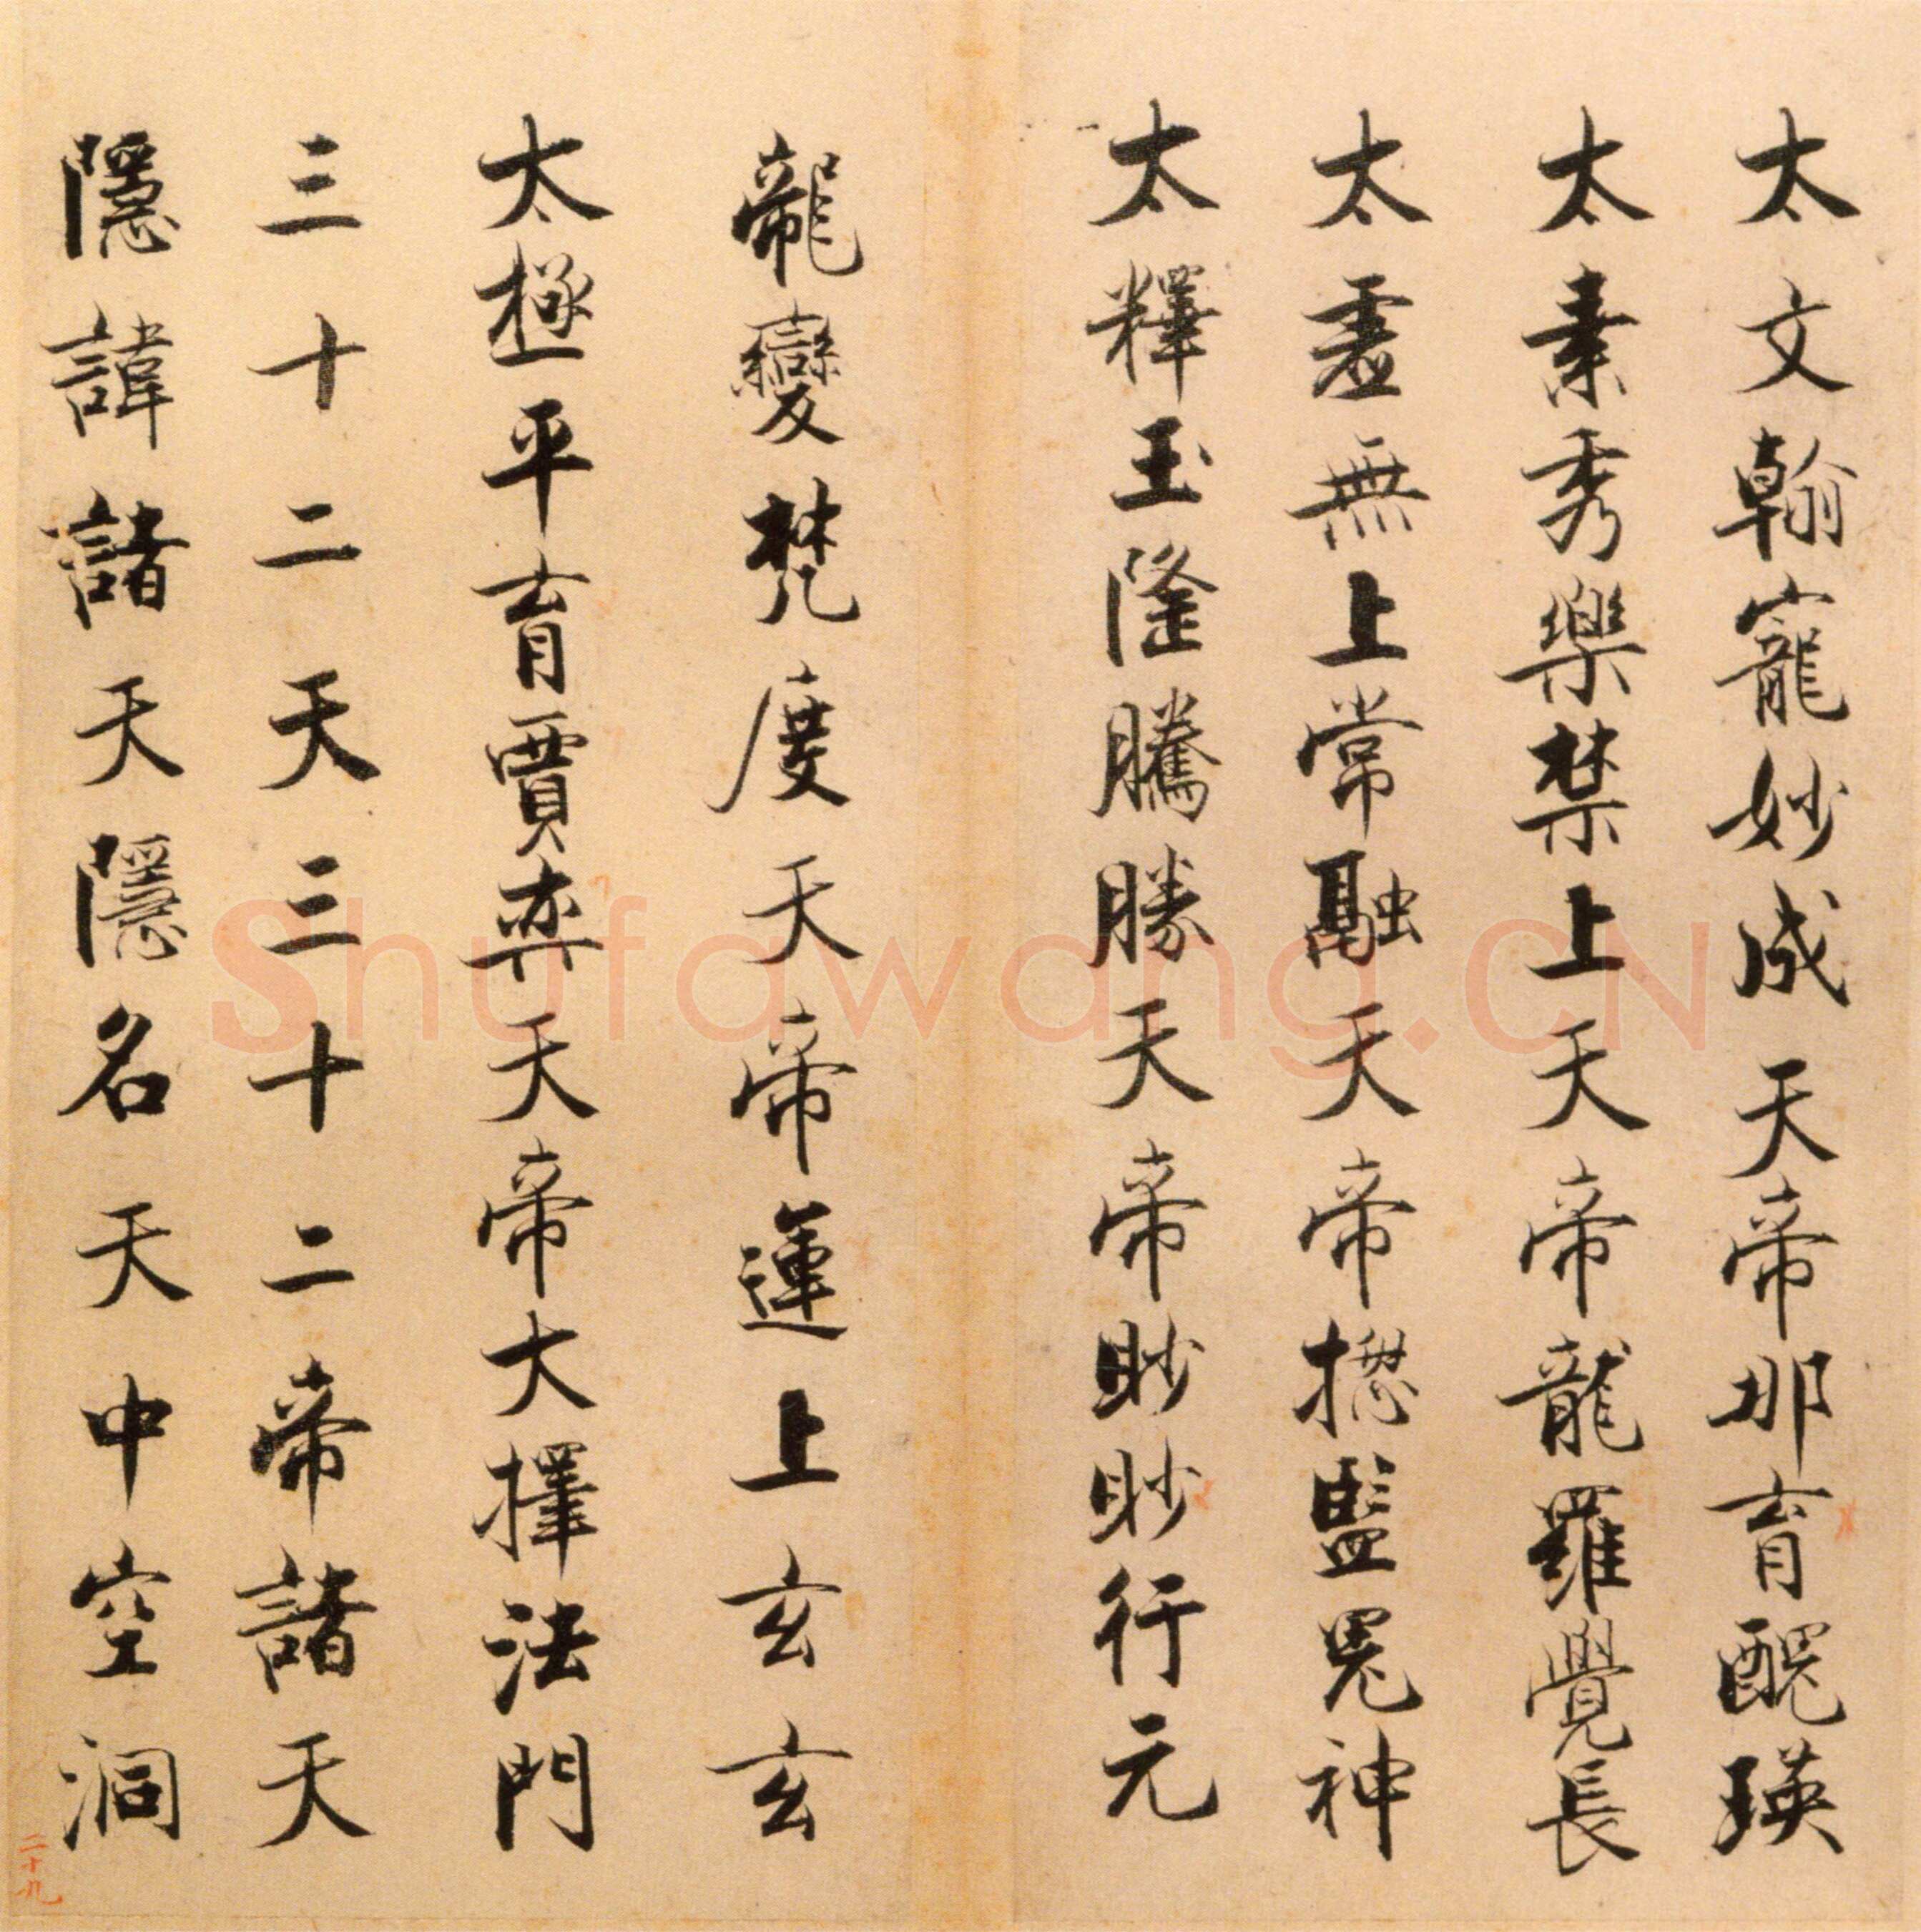 太文翰寵妙成天帝那育醜瑛
太素秀樂禁上天帝龍羅覺長
太虛無上常融天帝揔監鬼神
太釋玉隆騰勝天帝眇眇行元
龍變梵度天帝運上玄玄
太極平育賈弈天帝大擇法門
三十二天三十二帝諸天
隱諱諸天隱名天中空洞
二十九
Shufawang.CN